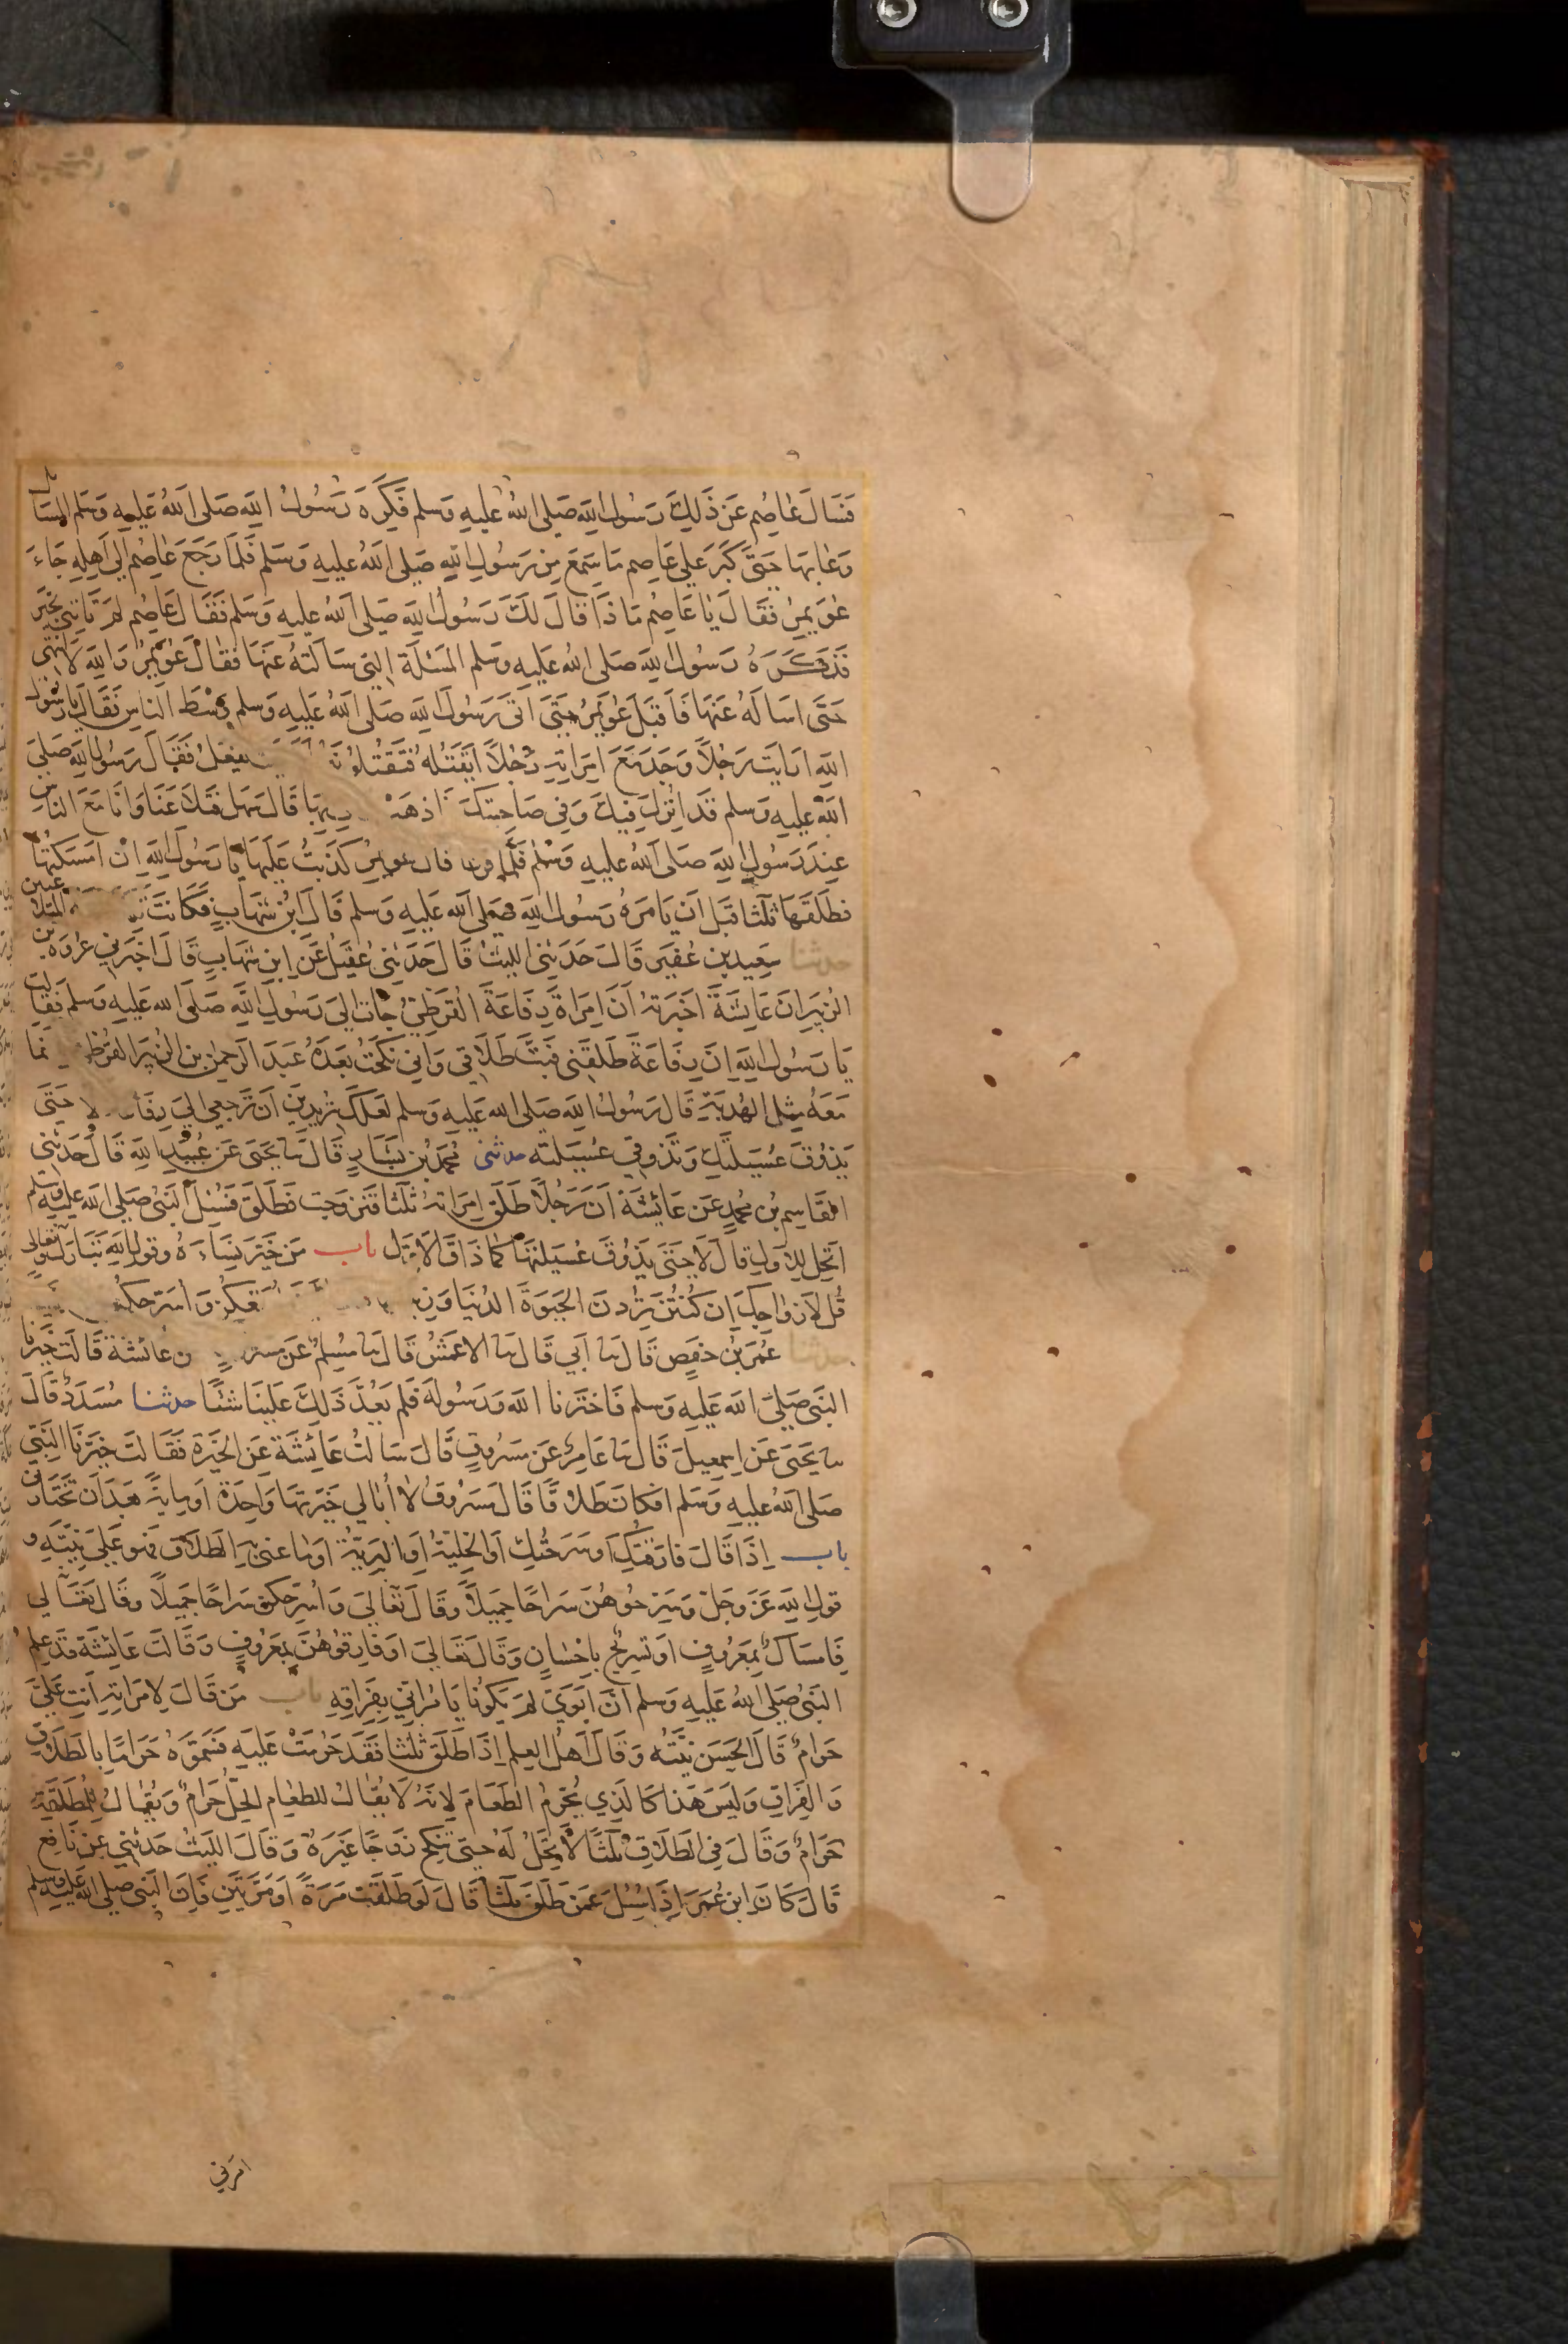 فَسَالَ عَاصِم عَنْ ذَلِكَ رَسُولَ اللّٰه صَلى اللهُ عَليهِ وَسَلم فَكَرِهَ رَسُولُ اللّٰه صَلى اللهُ عَليهِ وَسَلم المسَائل
وَعَابَهَا حَتَّى كَبُرَ عَلى عَاصِم مَا سَمِعَ مِن رَسُولِ اللّٰهِ صَلى اللهُ عَليهِ وَسَلم فَلمَا رَجَعَ عَاصِمُ اِلى اَهلِهِ جَاءَ
عُوَيمِرُ فَقَالَ يَا عَاصِمُ مَا ذَا قَالَ لَكَ رَسُولُ اللّٰه صَلى اللهُ عَليهِ وَسَلم فَقَالَ عَاصِمُ لم تَاتِنِي بخَير
قَد كَرِهَ رَسُولُ اللّٰه صَلى اللهُ عَليهِ وَسَلم المَسْئَلَة التي سَالتُهُ عَنهَا فَقَالَ عُوَيمِرُ وَاللّٰهِ لَا انْتَهى
حَتَّى اسَالَهُ عَنهَا فَاَقبَلَ عُوَيمِرُ حَتّى اَتى رَسُولَ اللّٰه صَلى اللهُ عَليهِ وَسَلم وَسْطَ الناسِ فَقَالَ يَا رَسُولَ
اللّٰه ارَايتَ رَجُلاً وَجَدَ مَعَ امرَاتِهِ رَجُلاً ايَقتُلُهُ فَتَقْتُلُونَهُ يَفعَلُ فَقَالَ رَسُولُ اللّٰه صَلى
اللهُ عَليهِ وَسَلم قَد اُنْزِلَ فِيكَ وَفِي صَاحِبَتِكَ فَاذهَبْ بِهَا قَالَ سَهل فَتَلاعَنَا وَانَا مَعَ الناسِ
عِندَ رَسُولِ اللّٰه صَلى اللهُ عَليهِ وَسَلم فَلمَا فرغا قال عويمِرُ كَذَبتُ عَلَيهَا يَا رَسُولَ اللّٰهِ اِنْ اَمسَكتُهَا
فطَلَّقَهَا ثَلثًا قَبلَ اَن يَامُرَهُ رَسُولُ اللّٰه صَلى اللهُ عَليهِ وَسَلم قَالَ ابْنُ شِهَابٍ فَكَانَت المتلاعنين
حدثنا سَعِيد بن عُفَير قَالَ حَدَثنِي الليثُ قَالَ حَدَثنِي عُقَيلُ عَن ابنِ شِهَابٍ قَالَ اخبَرَنِي عُروَة بن
الزُبَيرِ انَ عَائِشَةَ اَخبَرَتهُ اَنَ امرَاةَ رِفَاعَةَ القُرَظِيِّ جَات اِلى رَسُولِ اللّٰه صَلى الله عَليهِ وَسَلم فَقَالت
يَا رَسُولَ اللّٰهِ اِنَ رِفَاعَةَ طَلَّقَنِي فَبَتَّ طَلاقِي وَاِنِي نَكَحتُ بَعدَهُ عَبدَ الرَحمٰن بن الزبَير القرَظي نما
مَعَهُ مِثل الهُدبَةِ قَالَ رَسُولُ اللّٰه صَلى الله عَليهِ وَسَلم لَعَلكِ تُرِيدِينَ اَن تَرجِعِي اِلى رِفَاعة لا حَتّى
يَذُوقَ عُسَيلَتَكِ وَتَذُوقِي عُسَيلَتَه حدثني مُحَمَّدُ بن بَشَارٍ قَالَ ثنا يَحيَى عَن عُبَيدِ اللّٰه قَالَ حَدَثنِي
القَاسِمِ بنُ مُحَمدٍ عَن عَائِشَةَ اَنَ رَجُلاً طَلَّقَ امرَاتهُ ثَلثًا فَتَزوجَت فَطَلّقَ فَسُئِلَ النبيُ صَلى الله عَليهِ وَسَلم
اَتحِل لِلاَولِ قَالَ لَا حَتّى يَذُوقَ عُسَيلَتَهَا كَمَا ذَاقَ الاَوَل باب مَن خَيَّرَ نِسَاءَهُ وقَول اللّٰه تَبَارَكَ وَتَعَالى
قُل لاَزوَاجِكَ اِن كُنتُنَ تُرِدنَ الحَيوةَ الدُنيَا وَزِينتها مَتعكنّ وَاُسَرّحكنّ
حدثنا عُمَرُ بن حَفصٍ قَالَ ثنا اَبِي قَالَ ثنا الاعمَشُ قَالَ ثنا مُسلِمُ عَن مسروق عن عَائشة قَالَت خَيرَنَا
النَبِي صَلى اللهُ عَليهِ وَسَلم فَاختَرنَا اللّٰهَ وَرَسُولَهُ فَلَم يَعُدَّ ذَلِكَ عَلَينَا شَيئًا حدثنا مُسَدَدُ قَالَ
ثنا يَحيَى عَن اِسمعِيلَ قَالَ ثنا عَامِرُ عَن مَسرُوقٍ قَالَ سَالتُ عَائِشَةَ عَنِ الخِيَرَةِ فَقَالَت خَيَّرَنَا النَبِي
صَلى اللهُ عَليهِ وَسَلم افَكانَ طَلاقًا قَالَ مَسرُوقُ لا اُبَالي خَيَّرتُهَا وَاحِدَةً اَو مِايَةً بعَدَ اَن تَختَارَني
باب اِذَا قَالَ فَارَقتُكِ اَو سَرَحتُكِ اَو الخَلِيَّةُ اَو البَرِيَّةُ اَو مَا عُنِيَ بِهِ الطَلاق فَهوَ عَلى نِيَّتِهِ و
قَول اللّٰهِ عَزَ وجَلَ وَسَرِحُوهُنَ سَرَاحًا جَمِيلاً وَقَالَ تَعَالَى وَاُسَرِحكنَ سَرَاحًا جَمِيلاً وقَالَ تَعَالى
فَاِمسَاكُ بمَعرُوفٍ اَو تَسرِيحُ بِاِحسَانٍ وَقَالَ تَعَالى اَو فَارِقُوهُنَّ بمَعرُوفٍ وَقَالَت عَائِشَة قَد عَلِمَ
النَبيُ صَلى اللهُ عَليهِ وَسَلم اَنَ اَبَوَيَّ لم يَكُونَا يَامُرَانِي بِفِرَاقِهِ باب مَن قَالَ لاِمرَاتِهِ اَنتِ عَليَّ
حَرَامُ قَالَ الحَسَن نِيَّتُه وَقَالَ اَهلُ العِلم اِذَا طَلَّقَ ثَلَثًا فَقَد حَرُمَتْ عَلَيهِ فَسَموهُ حَرَامًا بِالطَلاق
وَالفِرَاقِ وَلَيسَ هَذَا كَالذِي يُحَرِّمُ الطَعَامَ لاِنَهُ لَا يُقَالُ للطَعَامِ الحِلِّ حَرَامُ وَيُقَالُ لِلمُطَلَّقَةِ
حَرَامُ وَقَالَ فِي الطَلاقِ ثَلثًا لَا تَحِلُ لَهُ حَتى تَنكِحَ زَوجًا غَيرَهُ وَقَالَ اللَيثُ حَدثَنِي عَن نَافِع
قَالَ كَانَ ابن عُمَرَ اِذَا سُئِلَ عَمَّن طَلَّقَ ثَلثًا قَالَ لَو طَلَّقتَ مَرَةً اَو مَرَتَينِ فَاِنَ النَبي صَلى الله عَليهِ وَسَلم
امرَني